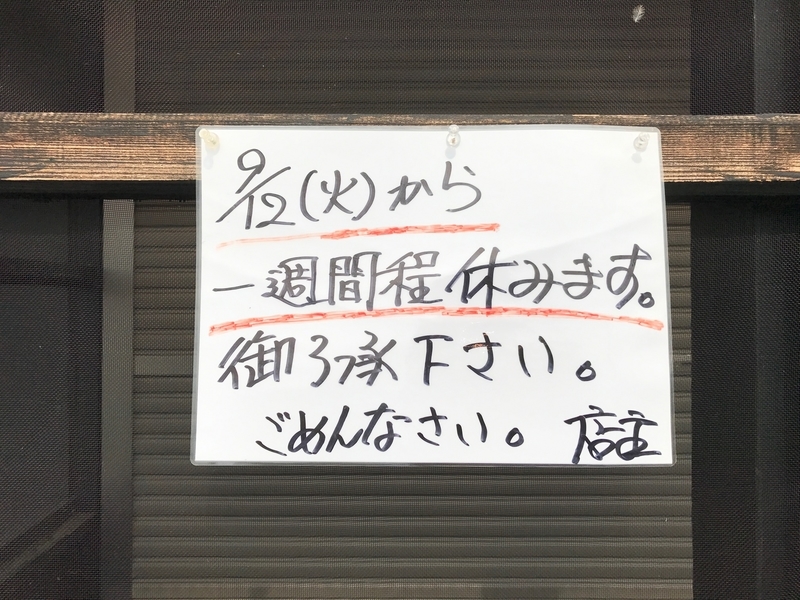 9/12(火)から
一週間程休みます。
御了承下さい。
ごめんなさい。 店主